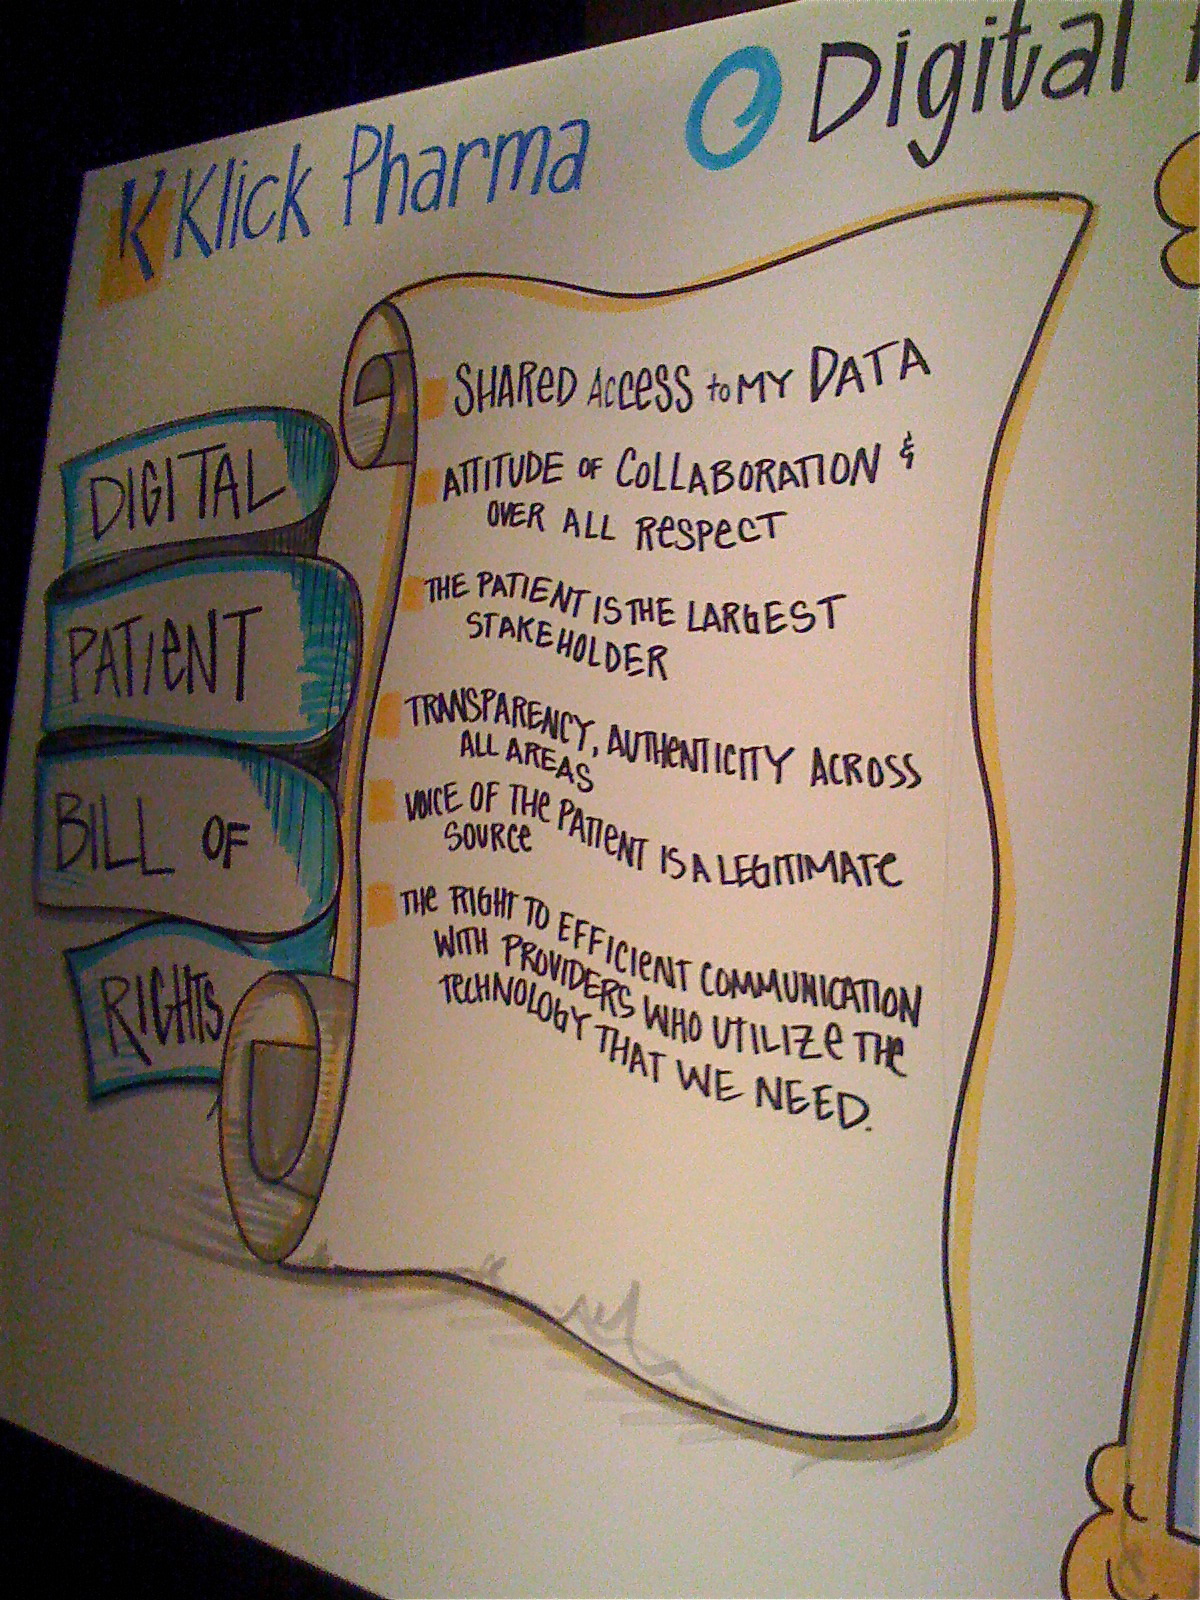 K Klick Pharma
Digital
DIGITAL
PATIENT
BILL OF
RIGHTS
SHARED ACCESS to MY DATA
ATTITUDE OF COLLABORATION &
OVER ALL RESPECT
THE PATIENT IS THE LARGEST
STAKEHOLDER
TRANSPARENCY, AUTHENTICITY ACROSS
ALL AREAS
VOICE OF THE PATIENT IS A LEGITIMATE
SOURCE
THE RIGHT TO EFFICIENT COMMUNICATION
WITH PROVIDERS WHO UTILIZE THE
TECHNOLOGY THAT WE NEED.